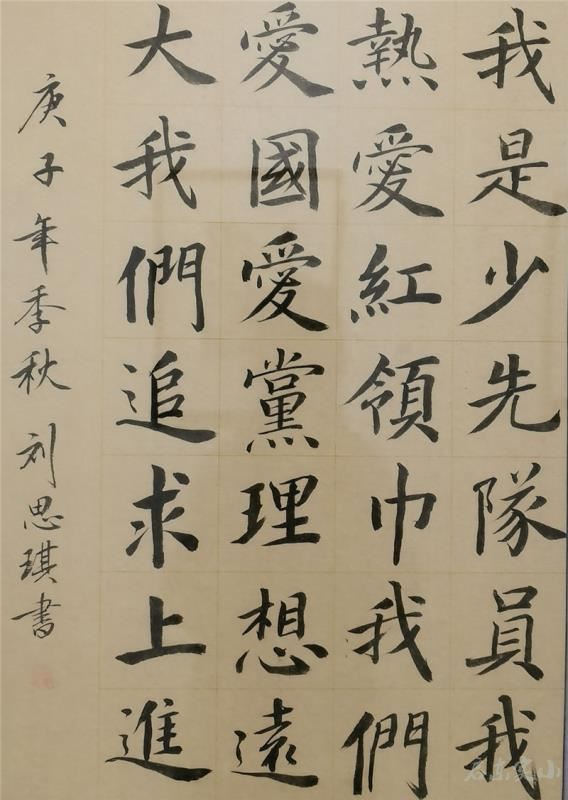 我是少先隊員我
熱愛紅領巾我們
愛國愛黨理想遠
大我們追求上進
庚子年季秋 刘思琪書